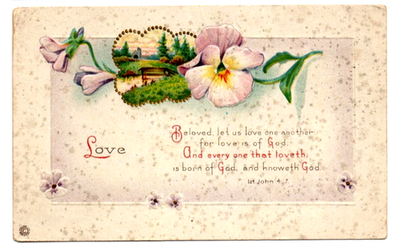 Love
Beloved, let us love one another
for love is of God.
And every one that loveth,
is born of God, and knoweth God.
1st John 4-7.